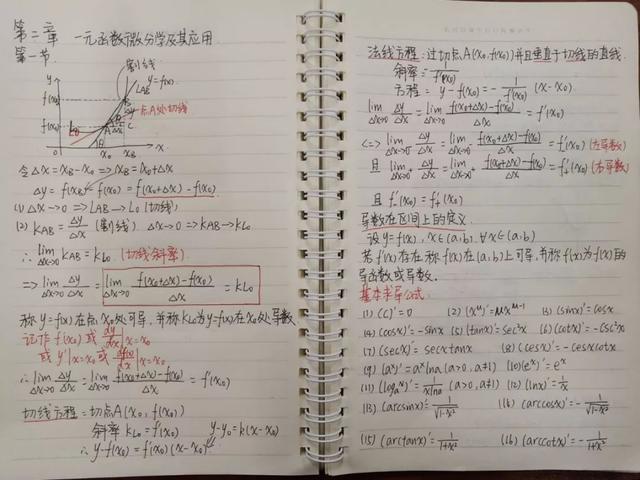 第二章 一元函数微分学及其应用
第一节.
割线
y
LAB y=f(x)
f(xB) B
Δy 点A处切线
f(x0) A Δx C
L0
0 x0 xB x
令Δx=xB-x0 => xB=x0+Δx
Δy=f(xB)-f(x0)=f(x0+Δx)-f(x0)
(1) Δx→0 => LAB→L0 (切线)
(2) KAB=Δy/Δx (割线) Δx→0 => KAB→KL0
∴ lim Δx→0 KAB=KL0 (切线斜率)
=> lim Δx→0 Δy/Δx = lim Δx→0 f(x0+Δx)-f(x0)/Δx = KL0
称y=f(x)在点x0处可导,并称KL0为y=f(x)在x0处导数
记作 f'(x0) 或 dy/dx|x=x0
或 y'|x=x0 或 df(x)/dx|x=x0
∴ lim Δx→0 Δy/Δx = lim Δx→0 f(x0+Δx)-f(x0)/Δx = f'(x0)
切线方程=切点A(x0,f(x0))
斜率KL0=f'(x0) y-y0=k(x-x0)
∴ y-f(x0)=f'(x0)(x-x0)
法线方程:过切点A(x0,f(x0))并且垂直于切线的直线.
斜率=-1/f'(x0)
方程=y-f(x0)=-1/f'(x0) (x-x0)
lim Δx→0 Δy/Δx = lim Δx→0 f(x0+Δx)-f(x0)/Δx = f'(x0)
<=> lim Δx→0⁻ Δy/Δx = lim Δx→0⁻ f(x0+Δx)-f(x0)/Δx = f'₋(x0) (左导数)
且 lim Δx→0⁺ Δy/Δx = lim Δx→0⁺ f(x0+Δx)-f(x0)/Δx = f'₊(x0) (右导数)
且 f'₋(x0)=f'₊(x0)
导数在区间上的定义
设y=f(x), x∈(a,b), ∀x∈(a,b)
若f'(x)存在称f(x)在(a,b)上可导,并称f'(x)为f(x)的
导函数或导数.
基本求导公式:
(1) (C)'=0 (2) (x^μ)'=μx^(μ-1) (3) (sinx)'=cosx
(4) (cosx)'=-sinx (5) (tanx)'=sec²x (6) (cotx)'=-csc²x
(7) (secx)'=secxtanx (8) (cscx)'=-cscxcotx
(9) (a^x)'=a^x lna (a>0,a≠1) (10) (e^x)'=e^x
(11) (logₐx)'=1/xlna (a>0,a≠1) (12) (lnx)'=1/x
(13) (arcsinx)'=1/√1-x² (14) (arccosx)'=-1/√1-x²
(15) (arctanx)'=1/1+x² (16) (arccotx)'=-1/1+x²